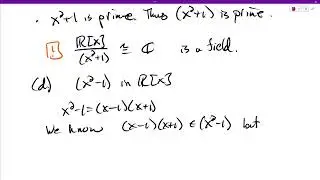 · x²+1 is prime. Thus (x²+1) is prime.
! ℝ[x]/(x²+1) ≅ ℂ is a field.
(d) (x²-1) in ℝ[x]
x²-1=(x-1)(x+1)
We know (x-1)(x+1) ∈ (x²-1) but